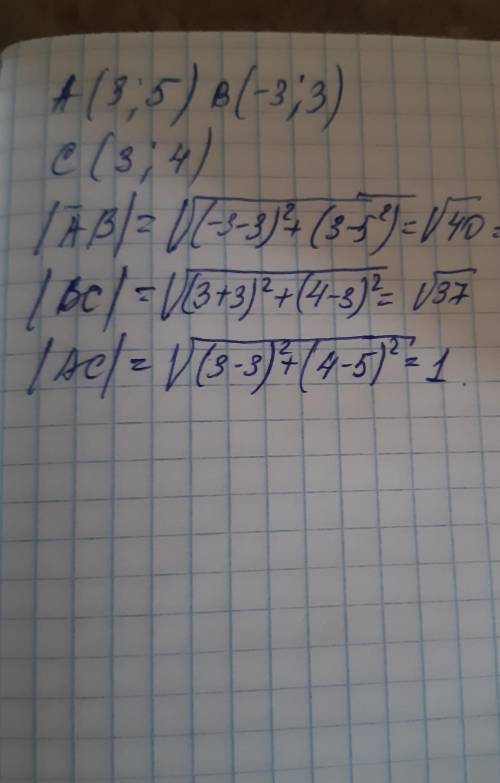 A (3; 5) B (-3; 3)
C (3; 4)
|AB| = √((-3-3)²+(3-5²) = √40 =
|BC| = √((3+3)²+(4-3)² = √37
|AC| = √(3-3)²+(4-5)² = 1.